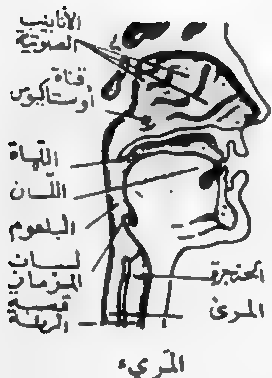 الأنابيب
الصوتية
قناة
أوستاكيوس
اللهاة
اللسان
البلعوم
لسان
المزمار
قصبة
الرئة
الحنجرة
المرئ
المريء